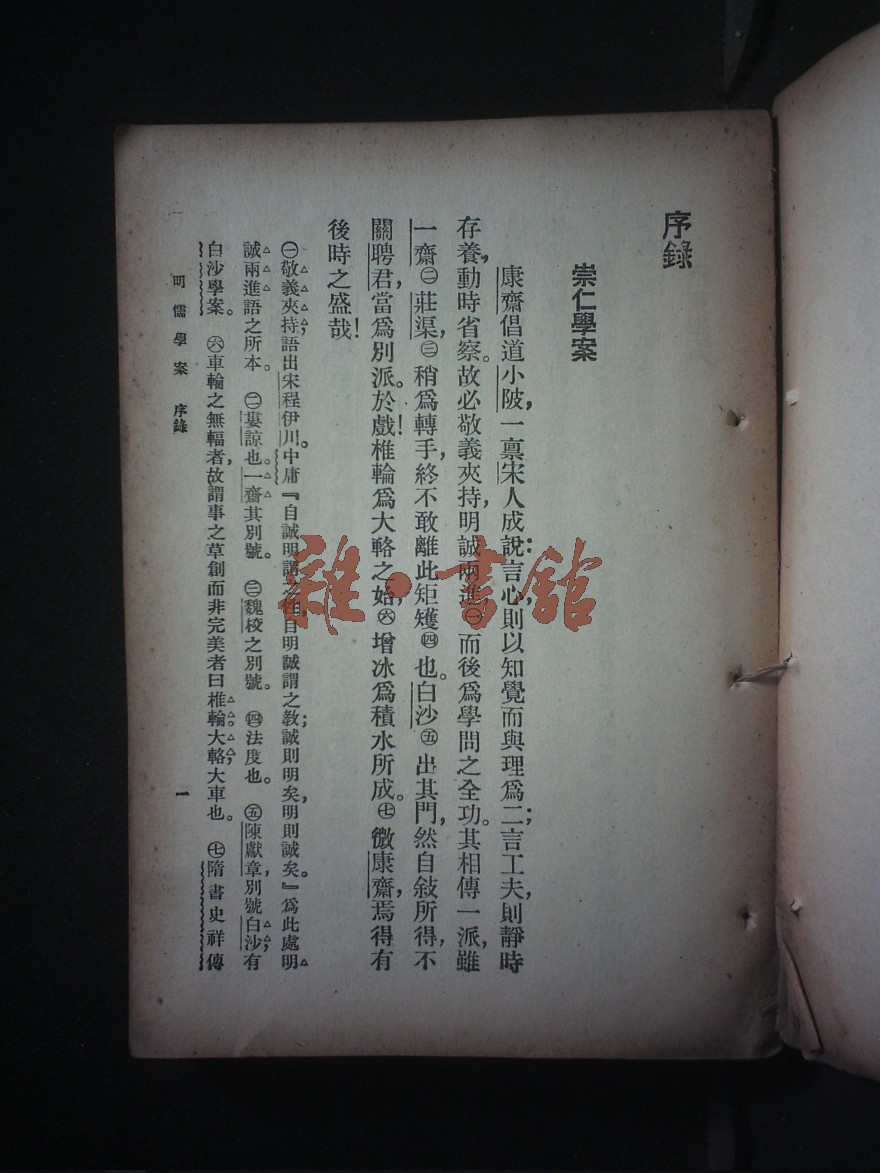 序錄
崇仁學案
康齋倡道小陂，一禀宋人成說：言心，則以知覺而與理爲二；言工夫，則靜時
存養，動時省察。故必敬義夾持，明誠兩進㊀而後爲學問之全功。其相傳一派，雖
一齋㊁莊渠，㊂稍爲轉手，終不敢離此矩矱㊃也。白沙㊄出其門，然自敍所得，不
關聘君，當爲別派。於戲！椎輪爲大輅之始，㊅增冰爲積水所成。㊆微康齋，焉得有
後時之盛哉！
㊀敬義夾持，語出宋程伊川。中庸『自誠明謂之性，自明誠謂之教；誠則明矣，明則誠矣。』爲此處明
誠兩進語之所本。㊁婁諒也。一齋其別號。㊂魏校之別號。㊃法度也。㊄陳獻章，別號白沙，有
白沙學案。㊅車輪之無輻者，故謂事之草創而非完美者曰椎輪。大輅，大車也。㊆隋書史祥傳
明儒學案 序錄
一
雜·書館